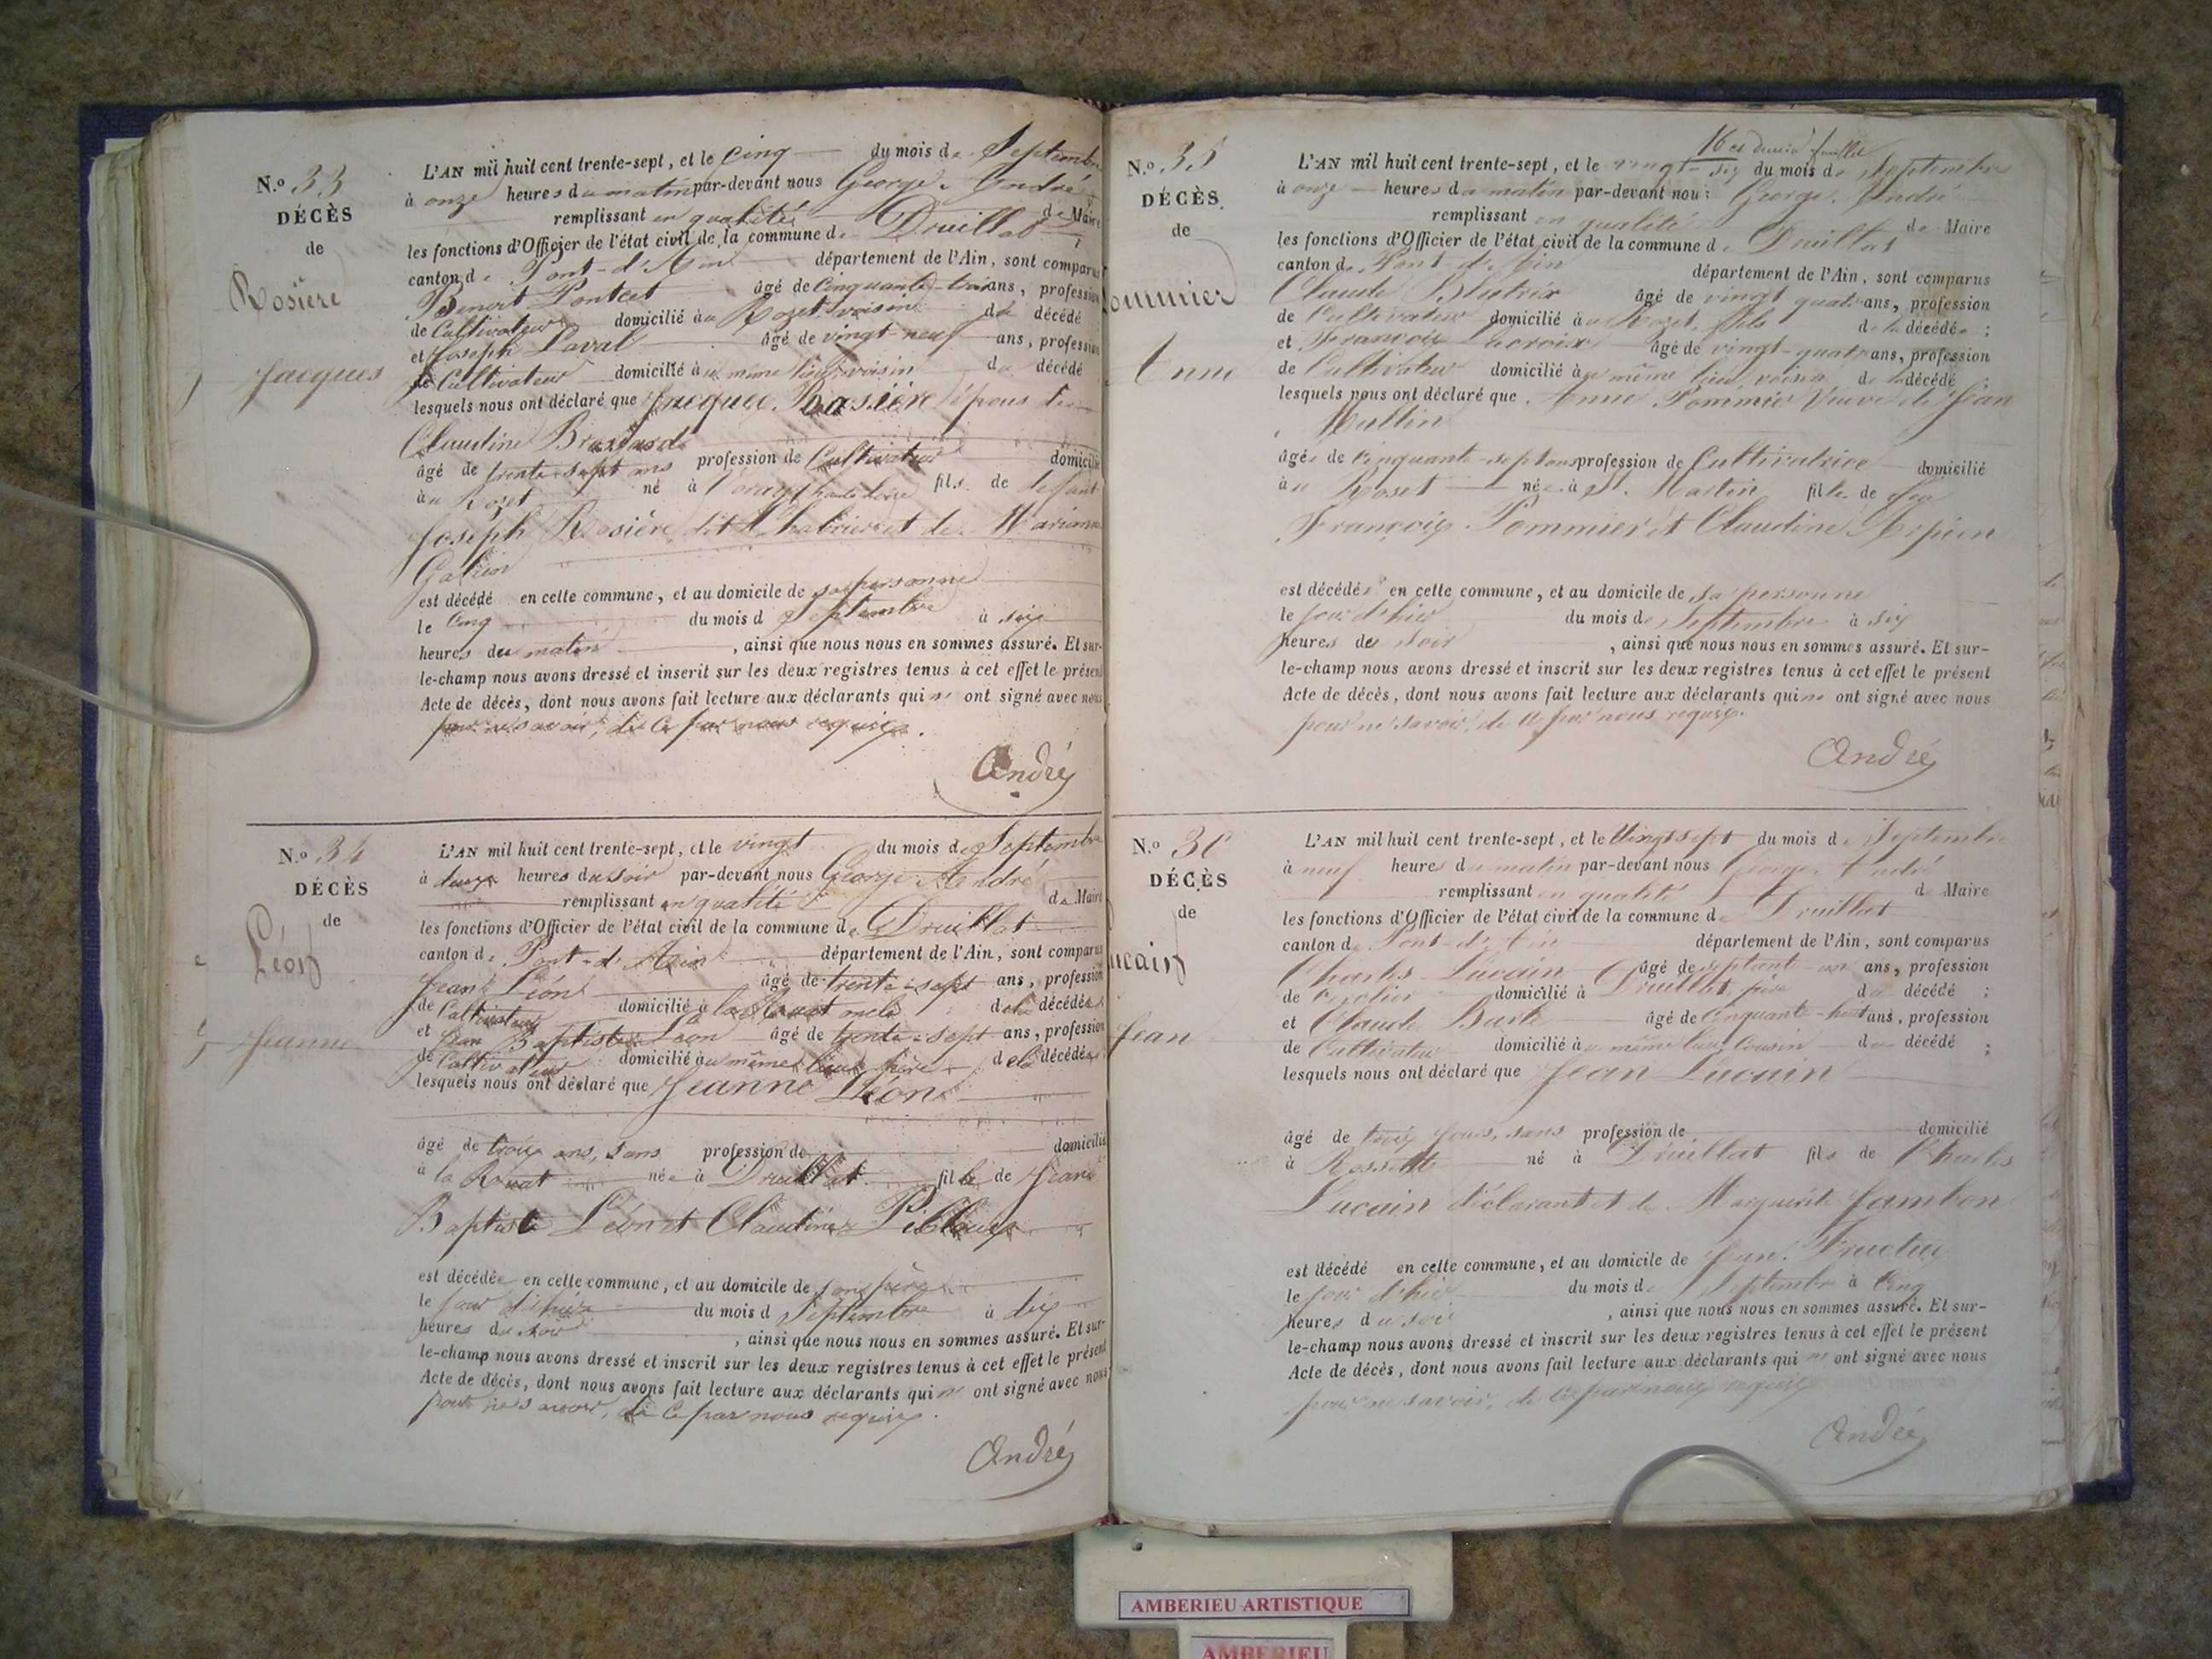 N.º 33
DÉCÈS
de
Rosière
Jacques
L'AN mil huit cent trente-sept, et le cinq du mois de Septembre
à onze heures du matin par-devant nous George André
remplissant en qualité de Maire
les fonctions d'Officier de l'état civil de la commune de Druillat
canton de Pont-d'Ain département de l'Ain, sont comparus
Benoit Pontcet âgé de cinquante-trois ans, profession
de Cultivateur domicilié au Rozet, voisin du décédé
et Joseph Laval âgé de vingt-neuf ans, profession
de Cultivateur domicilié au même lieu, voisin du décédé
lesquels nous ont déclaré que Jacques Rosière époux de
Claudine
âgé de trente-sept ans profession de Cultivateur domicilié
au Rozet né à haute Loire fils de defunt
Joseph Rosière dit Chabrier et de Marianne
Galien
est décédé en cette commune, et au domicile de sa personne
le cinq du mois d Septembre à six
heures du matin, ainsi que nous nous en sommes assuré. Et sur-
le-champ nous avons dressé et inscrit sur les deux registres tenus à cet effet le présent
Acte de décès, dont nous avons fait lecture aux déclarants qui n' ont signé avec nous
pour ne savoir, de ce par nous requis.
André
N.º 34
DÉCÈS
de
Léon
Jeanne
L'AN mil huit cent trente-sept, et le vingt du mois de Septembre
à deux heures du soir par-devant nous George André
remplissant en qualité de Maire
les fonctions d'Officier de l'état civil de la commune de Druillat
canton de Pont-d'Ain département de l'Ain, sont comparus
Jean Léon âgé de trente-sept ans, profession
de Cultivateur domicilié à la Rouat oncle de la décédée
et Jean Baptiste Léon âgé de trente-sept ans, profession
de Cultivateur domicilié au même lieu, père de la décédée
lesquels nous ont déclaré que Jeanne Léon
âgé de trois ans, sans profession de domicilié
à la Rouat née à Druillat fille de Jean
Baptiste Léon et Claudine
est décédée en cette commune, et au domicile de son père
le jour d'hier du mois d Septembre à dix
heures du soir, ainsi que nous nous en sommes assuré. Et sur-
le-champ nous avons dressé et inscrit sur les deux registres tenus à cet effet le présent
Acte de décès, dont nous avons fait lecture aux déclarants qui n' ont signé avec nous
pour ne savoir, de ce par nous requis.
André
N.º 35
DÉCÈS
de
ommier
Anne
16e et dernier feuillet
L'AN mil huit cent trente-sept, et le vingt-six du mois de Septembre
à onze heures du matin par-devant nous George André
remplissant en qualité de Maire
les fonctions d'Officier de l'état civil de la commune de Druillat
canton de Pont-d'Ain département de l'Ain, sont comparus
Claude Blutrix âgé de vingt quatre ans, profession
de Cultivateur domicilié au Rozet, fils de la décédée ;
et François Lacroix âgé de vingt-quatre ans, profession
de Cultivateur domicilié au même lieu, voisin de la décédé ;
lesquels nous ont déclaré que Anne Pommier Veuve de Jean
Mullin
âgée de cinquante-sept ans profession de Cultivatrice domicilié
au Roset née à St. Martin fille de feu
François Pommier et Claudine Arpien
est décédée en cette commune, et au domicile de sa personne
le jour d'hier du mois de Septembre à six
heures du soir, ainsi que nous nous en sommes assuré. Et sur-
le-champ nous avons dressé et inscrit sur les deux registres tenus à cet effet le présent
Acte de décès, dont nous avons fait lecture aux déclarants qui n' ont signé avec nous
pour ne savoir, de ce par nous requis.
André
N.º 36
DÉCÈS
de
ucain
Jean
L'AN mil huit cent trente-sept, et le Vingt sept du mois de Septembre
à neuf heures du matin par-devant nous George André
remplissant en qualité de Maire
les fonctions d'Officier de l'état civil de la commune de Druillat
canton de Pont-d'Ain département de l'Ain, sont comparus
Charles Lucain âgé de septante un ans, profession
de domicilié à Druillat, père du décédé ;
et Claude âgé de cinquante-huit ans, profession
de Cultivateur domicilié au même lieu, cousin du décédé ;
lesquels nous ont déclaré que Jean Lucain
âgé de trois jours, sans profession de domicilié
à né à Druillat fils de Charles
Lucain déclarant et de Marguerite Jambon
est décédé en cette commune, et au domicile de Jean
le jour d'hier du mois de Septembre à cinq
heures du soir, ainsi que nous nous en sommes assuré. Et sur-
le-champ nous avons dressé et inscrit sur les deux registres tenus à cet effet le présent
Acte de décès, dont nous avons fait lecture aux déclarants qui n' ont signé avec nous
pour ne savoir, de ce par nous requis
André
AMBERIEU ARTISTIQUE
AMBERIEU